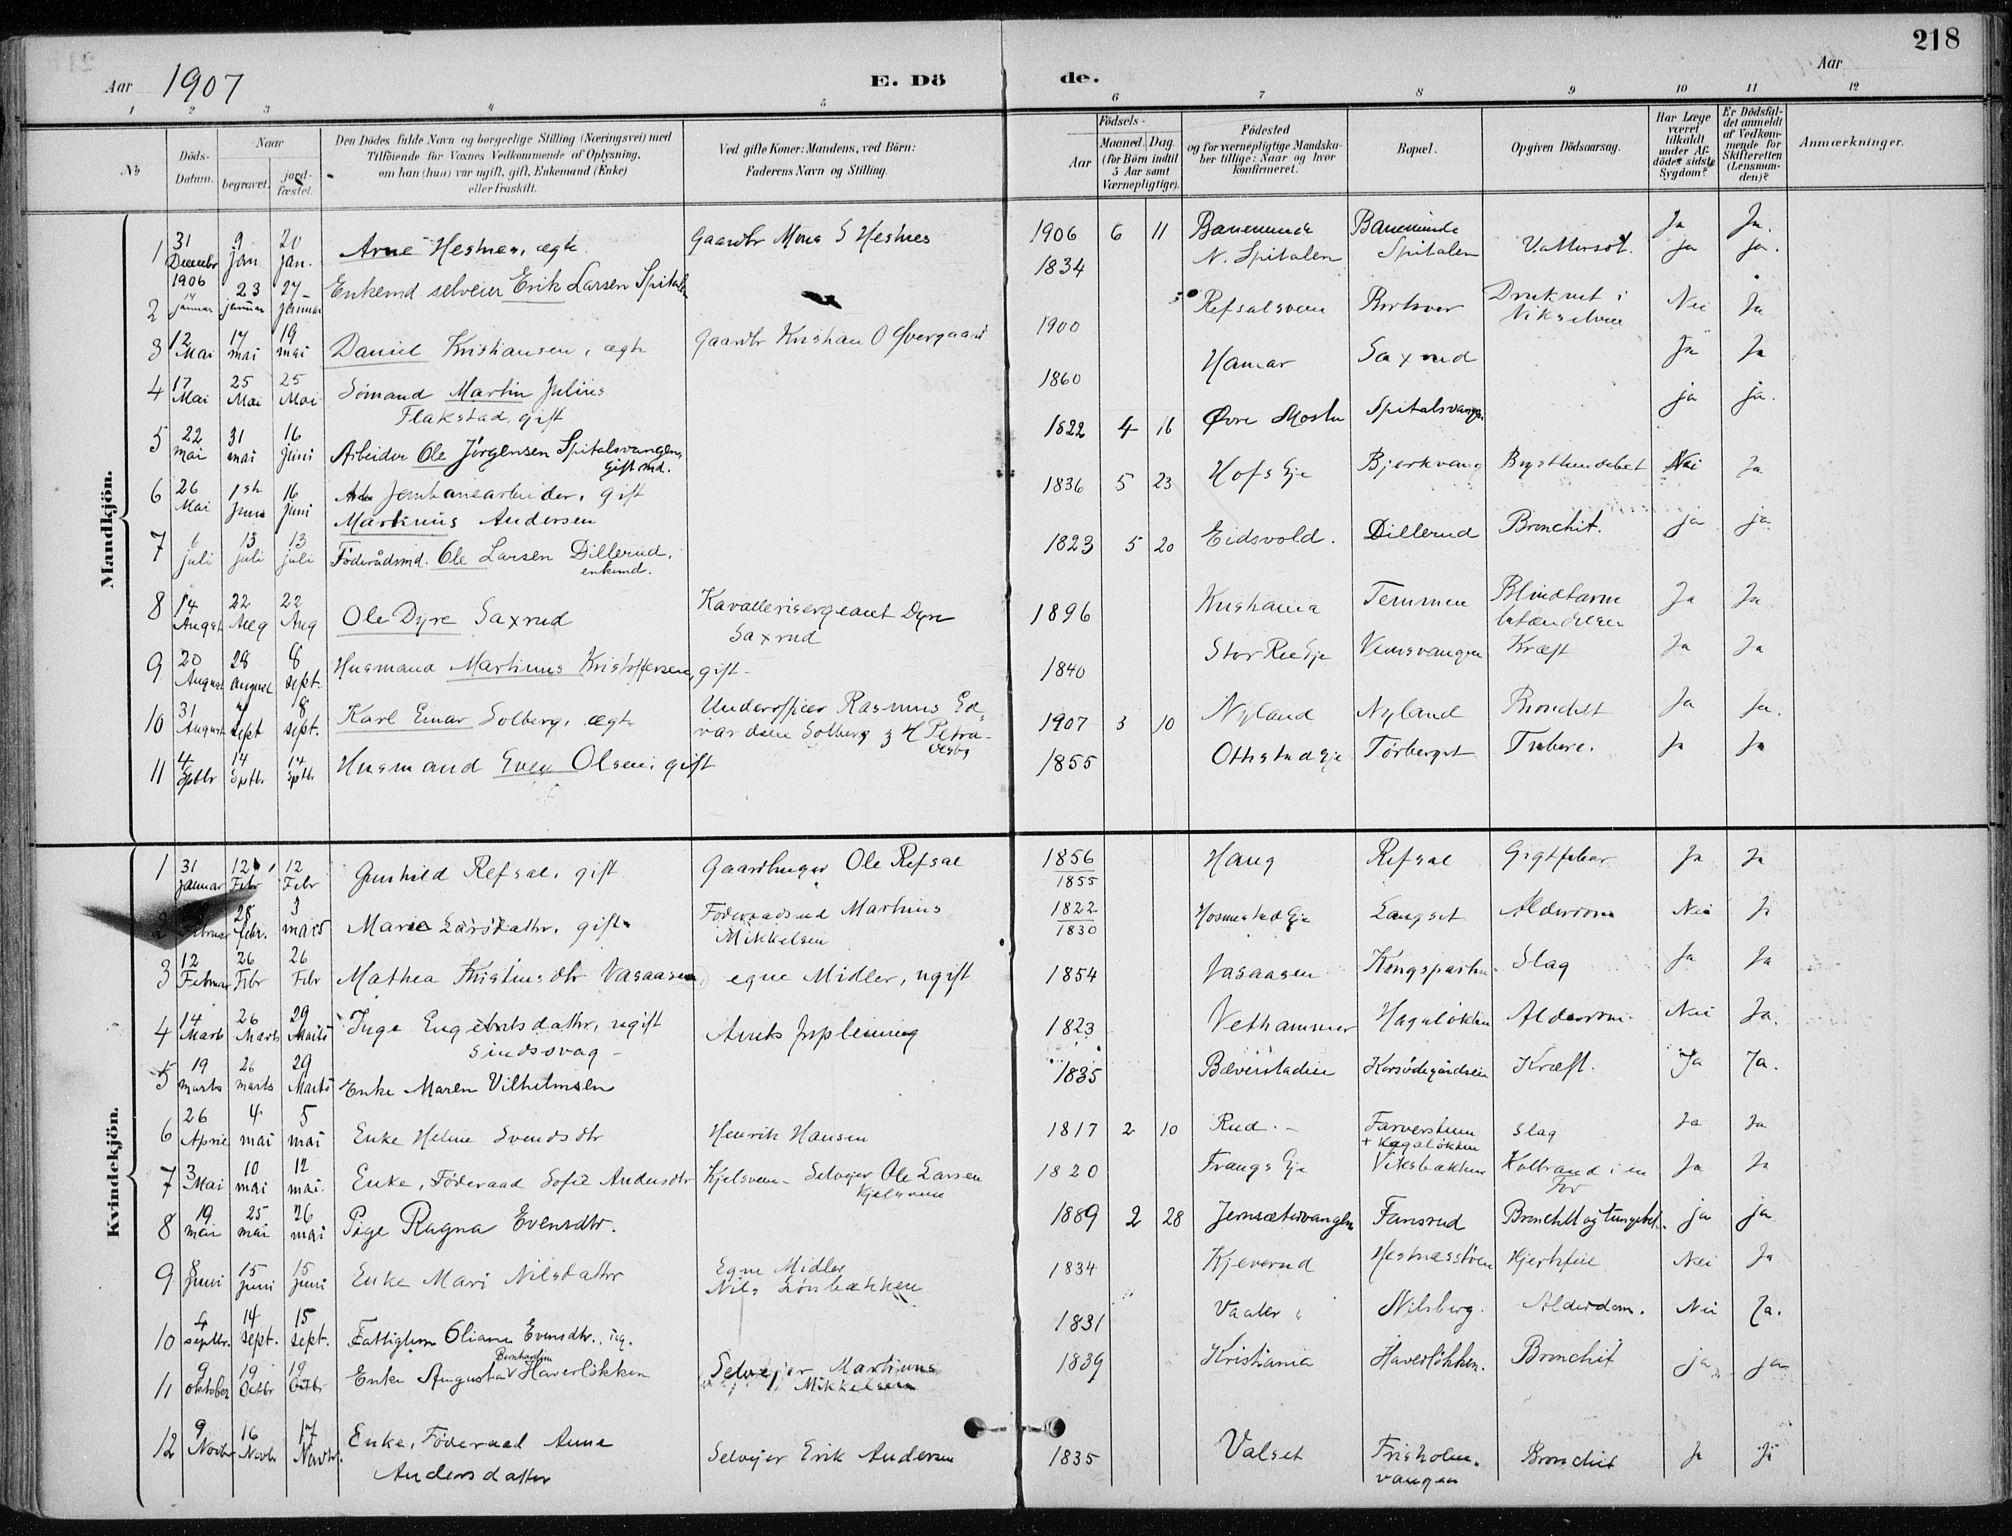 218
Aar 1907 E. Döde. Aar
1 2 3 4 5 6 7 8 9 10 11 12
No
Döds-Datum.
Naar
begravet.
jordfæstet.
Den Dödes fulde Navn og borgerlige Stilling (Næringsvei) med
Tilföiende for Voxnes Vedkommende af Oplysning,
om han (hun) var ugift, gift, Enkemand (Enke)
eller fraskilt.
Ved gifte Koner: Mandens, ved Börn:
Faderens Navn og Stilling.
Födsels-
Aar
Maaned. Dag.
(for Börn indtil
5 Aar samt
Værnepligtige).
Födested
og for værnepligtige Mandska-
ber tillige: Naar og hvor
konfirmeret.
Bopæl.
Opgiven Dödsaarsag.
Har Læge
været
tilkaldt
under Af-
dödes sidste
Sygdom?
Er Dödsfal-
det anmeldt
af Vedkom-
mende for
Skifteretten
(Lensman-
den)?
Anmærkninger.
Mandkjön.
1 31 Decembr 1906 9 jan 20 jan. Arne Hesnes, ægte Gaardbr Mons S Hesnes 1906 6 11 Baneminde Baneminde Ja Ja.
2 14 januar 23 januar 27 januar Enkemd selveier Erik Larsen Spitalen 1834 N. Spitalen Spitalen Vattersot. ja ja.
3 12 Mai 17 mai 19 mai Daniel Kristiansen, ægte Gaardbr Kristian O Øvergaard 1900 Refsalsveen Druknet i Nei Ja
4 17 Mai 25 Mai 25 Mai Sömand Martin Julius 1860 Hamar Saxrud Ja Ja
Flakstad, gift
5 22 mai 31 mai 16 juni Arbeider Ole Jörgensen Spitalsvangen, 1822 4 16 Øvre Spitalsvangen ja ja.
Gift md.
6 26 Mai 1ste Juni 16 juni Jernbanearbeider, gift 1836 5 23 Hofs Eje Bjerkvang Nei Ja
Martinus Andersen
7 6 juli 13 juli 13 juli Föderådsmd. Ole Larsen Dillerud, 1823 5 20 Eidsvold. Dillerud Bronchit. ja ja
enkemd.
8 14 August 22 Aug 22 Aug Ole Dyre Saxrud Kavallerisergeant Dyre 1896 Kristiania Temmen Blindtarm Ja Ja
Saxrud betændelsen
9 20 August 28 august 8 sept. Husmand Martinus Kristoffersen, gift 1840 Stor Ree Eje Vemsvangen Kræft Ja Ja
10 31 August sept 8 sept. Karl Einar Solberg, ægte Underofficer Rasmus Ed- 1907 3 10 Nyland Nyland Bronchit Ja Ja.
vardsen Solberg & H Petra
11 4 Sptbr 14 Sptbr 14 Sptbr Husmand Even Olsen, gift 1855 Ottestad Eje Törberget Tuberc. Ja Ja
Kvindekjön.
1 31 Januar 12 Febr 12 Febr Gunhild Refsal, gift Gaardbruger Ole Refsal 1856 Hang Refsal Gigtfeber Ja Ja
1855
2 Februar 28 febr. 3 mars Marie Larsdattr, gift Föderaadsmd Martinus 1822 Hosmestad Eje Langset Alderdom Nei Ja
Mikkelsen 1830
3 12 Februar 26 Febr 26 Febr Mathea Kristinsdtr Vasaasen, egne Midler, ugift 1854 Vasaasen Slag Ja Ja
4 14 Marts 26 Marts 29 Marts Inga Engebretsdattr, ugift Amts forpleining 1823 Vethammer Hagaløkken Alderdom Nei Ja.
Sindssvag
5 19 marts 26 marts 29 Marts Enke Maren Vilhelmsen 1835 Bæverstadeie Korsødegårdseie Kræft. Ja Ja.
6 26 April 4 mai 5 mai Enke Helene Svendsdtr Henrik Hansen 1817 2 10 Rud. Farverstuen Slag Ja Ja
+ Hagaløkken
7 3 Mai 10 mai 12 mai. Enke, Föderaad Sofie Andersdtr Kjelsveen Selveier Ole Larsen 1820 Frangs Eje Viksbækken Kolbrand i en Ja Ja
Kjelsveen For
8 19 mai 25 mai 26 mai Pige Ragna Evensdtr. 1889 2 28 Jernsætervangen Fansrud Bronchit og tungebet. ja ja
9 8 Juni 15 juni 15 juni Enke Mari Nilsdattr Egne Midler 1834 Kjeverud Hesnæsstöen Hjertefeil Nei Ja
10 4 septbr. 14 sept. 15 sept. Fattiglem Oliane Evensdtr., ug. 1831 Vaaler Nilsberg. Alderdom. Nei Ja.
11 9 oktober 19 Octbr 19 Octbr Enke Augusta Bernhardine Haverløkken Selveier Martinus 1839 Kristiania Haverløkken. Bronchit ja ja
Mikkelsen
12 9 Novbr 16 Novbr 17 Novbr. Enke, Föderaad Anne Selveier Erik Andersen 1835 Valset Frisholm- Bronchit Ja Ja
Andersdatter vangen